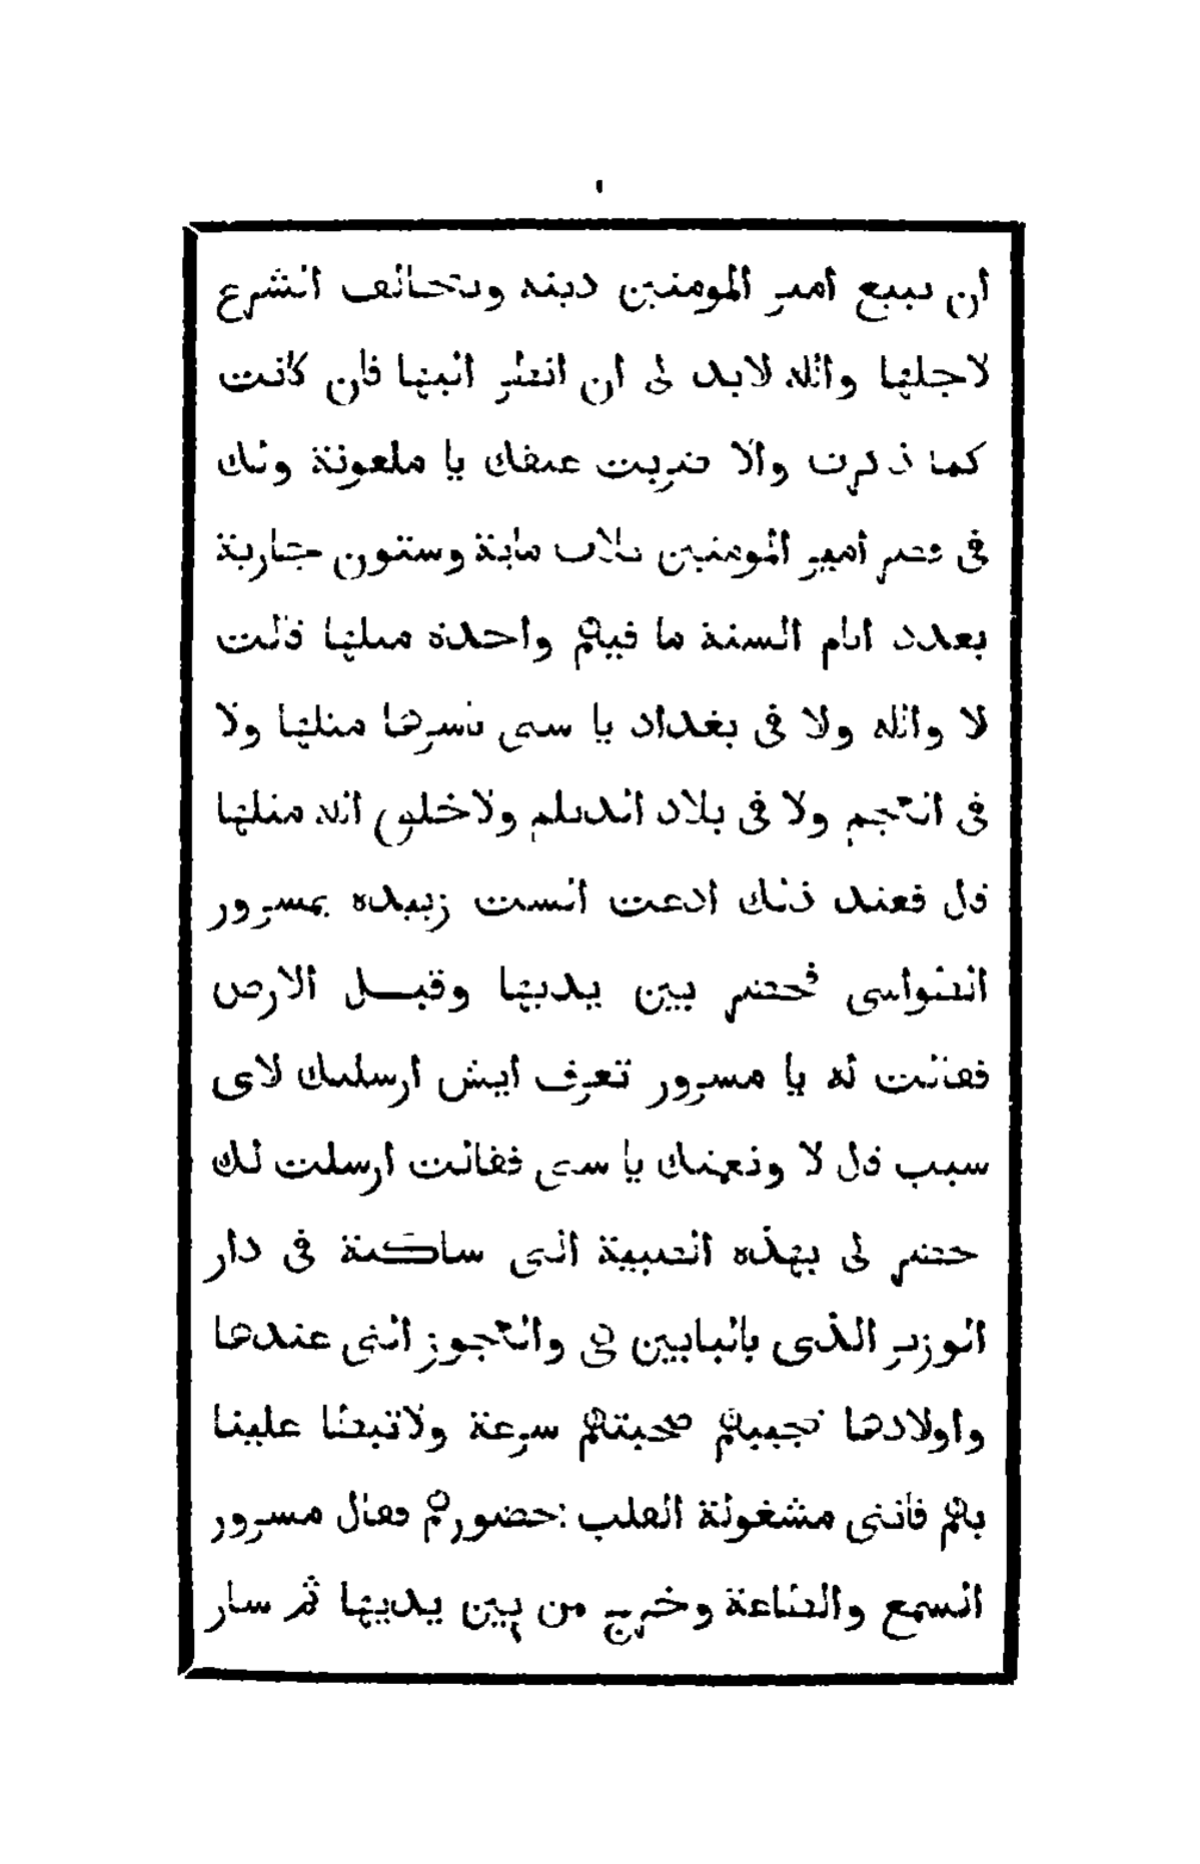 ١
ان يبيع امير المومنين دينه ويخالف الشرع
لاجلها والله لابد لى ان انظر اليها فان كانت
كما ذكرت والا ضربت عنقك يا ملعونة ولك
فى قصر امير المومنين ثلاث ماية وستون جارية
بعدد ايام السنة ما فيهم واحدة مثلها قالت
لا والله ولا فى بغداد يا ستى باسرها مثلها ولا
فى العجم ولا فى بلاد الديلم ولا خلق الله مثلها
قال فعند ذلك ادعت الست زبيده بمسرور
الطواسى فحضر بين يديها وقبل الارض
فقالت له يا مسرور تعرف ايش ارسلتك لاى
سبب قال لا ونعمتك يا ستى فقالت ارسلت لك
حضر لى بهذه الصبية التى ساكنة فى دار
الوزير الذى بالبابين هى والعجوز التى عندها
واولادها تجيبهم صحبتهم سرعة ولا تبطا علينا
بهم فاننى مشغولة القلب بحضورهم فقال مسرور
السمع والطاعة وخرج من بين يديها ثم سار